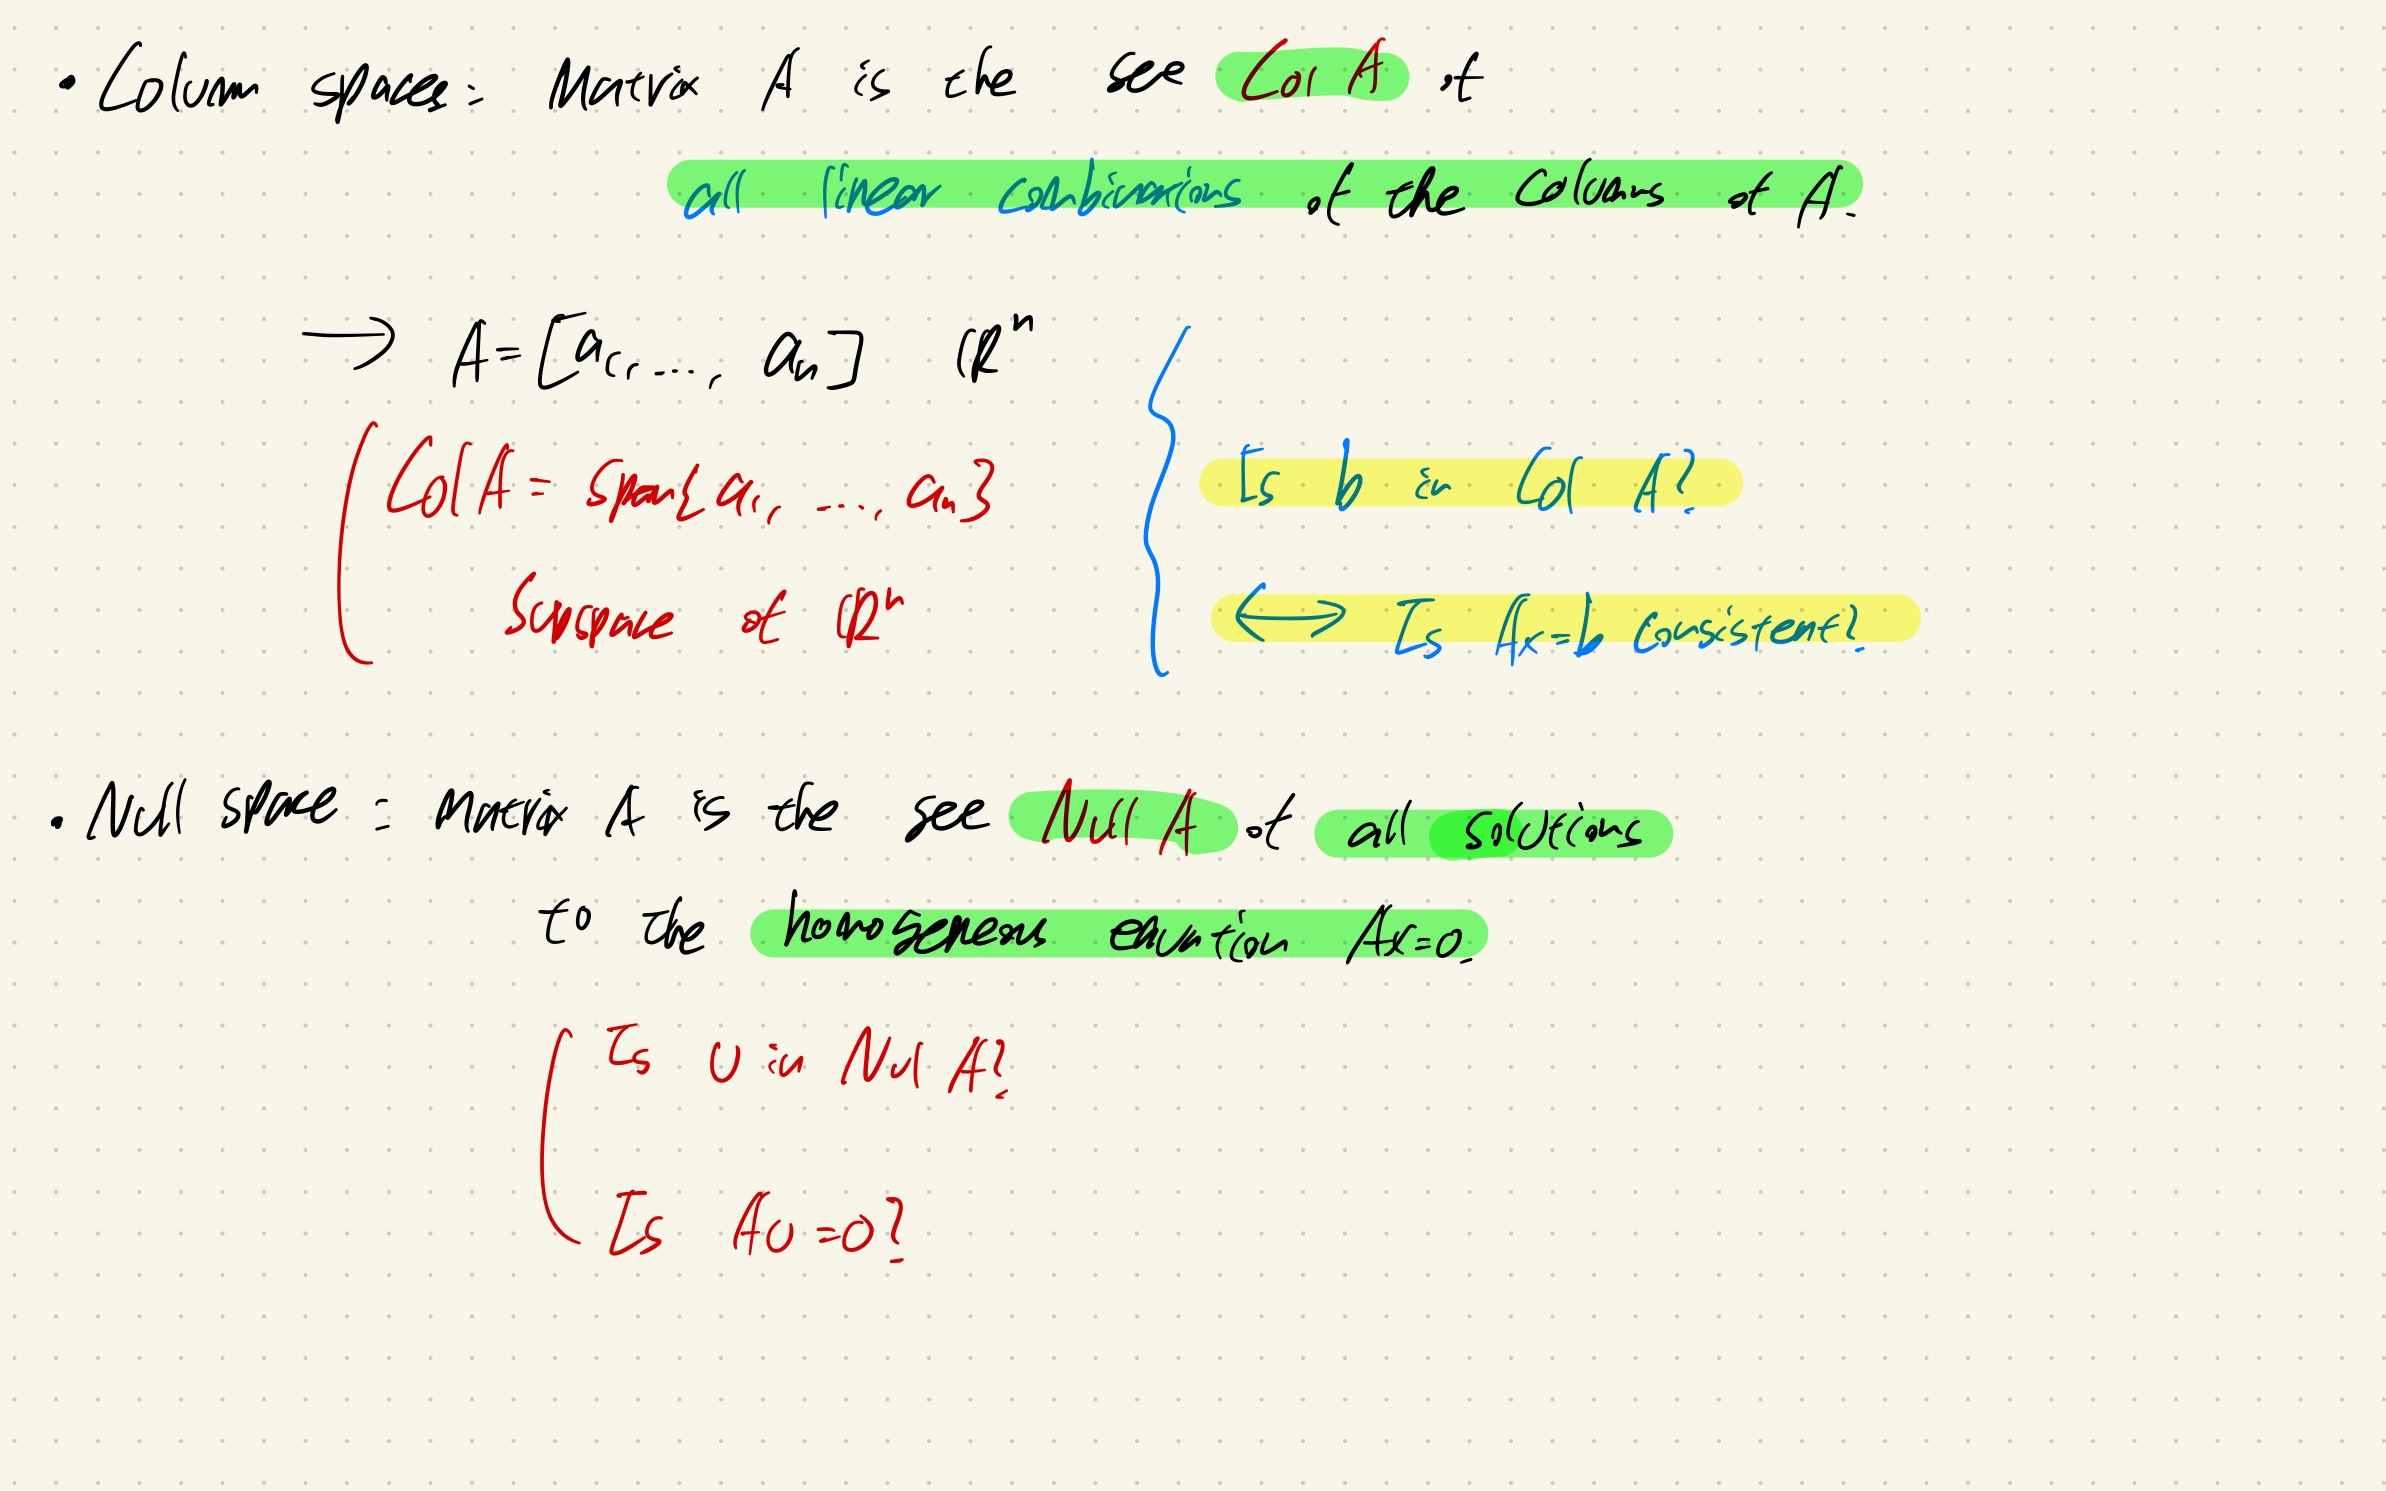 • Column spaces: Matrix A is the set Col A of
all linear combinations of the columns of A.
→ A = [a₁, ..., aₙ] ℝⁿ
Col A = span{a₁, ..., aₙ}
Subspace of ℝⁿ
Is b in Col A?
↔ Is Ax=b consistent?
• Null space: Matrix A is the set Null A of all solutions
to the homogeneous equation Ax=0.
Is u in Nul A?
Is Au=0?